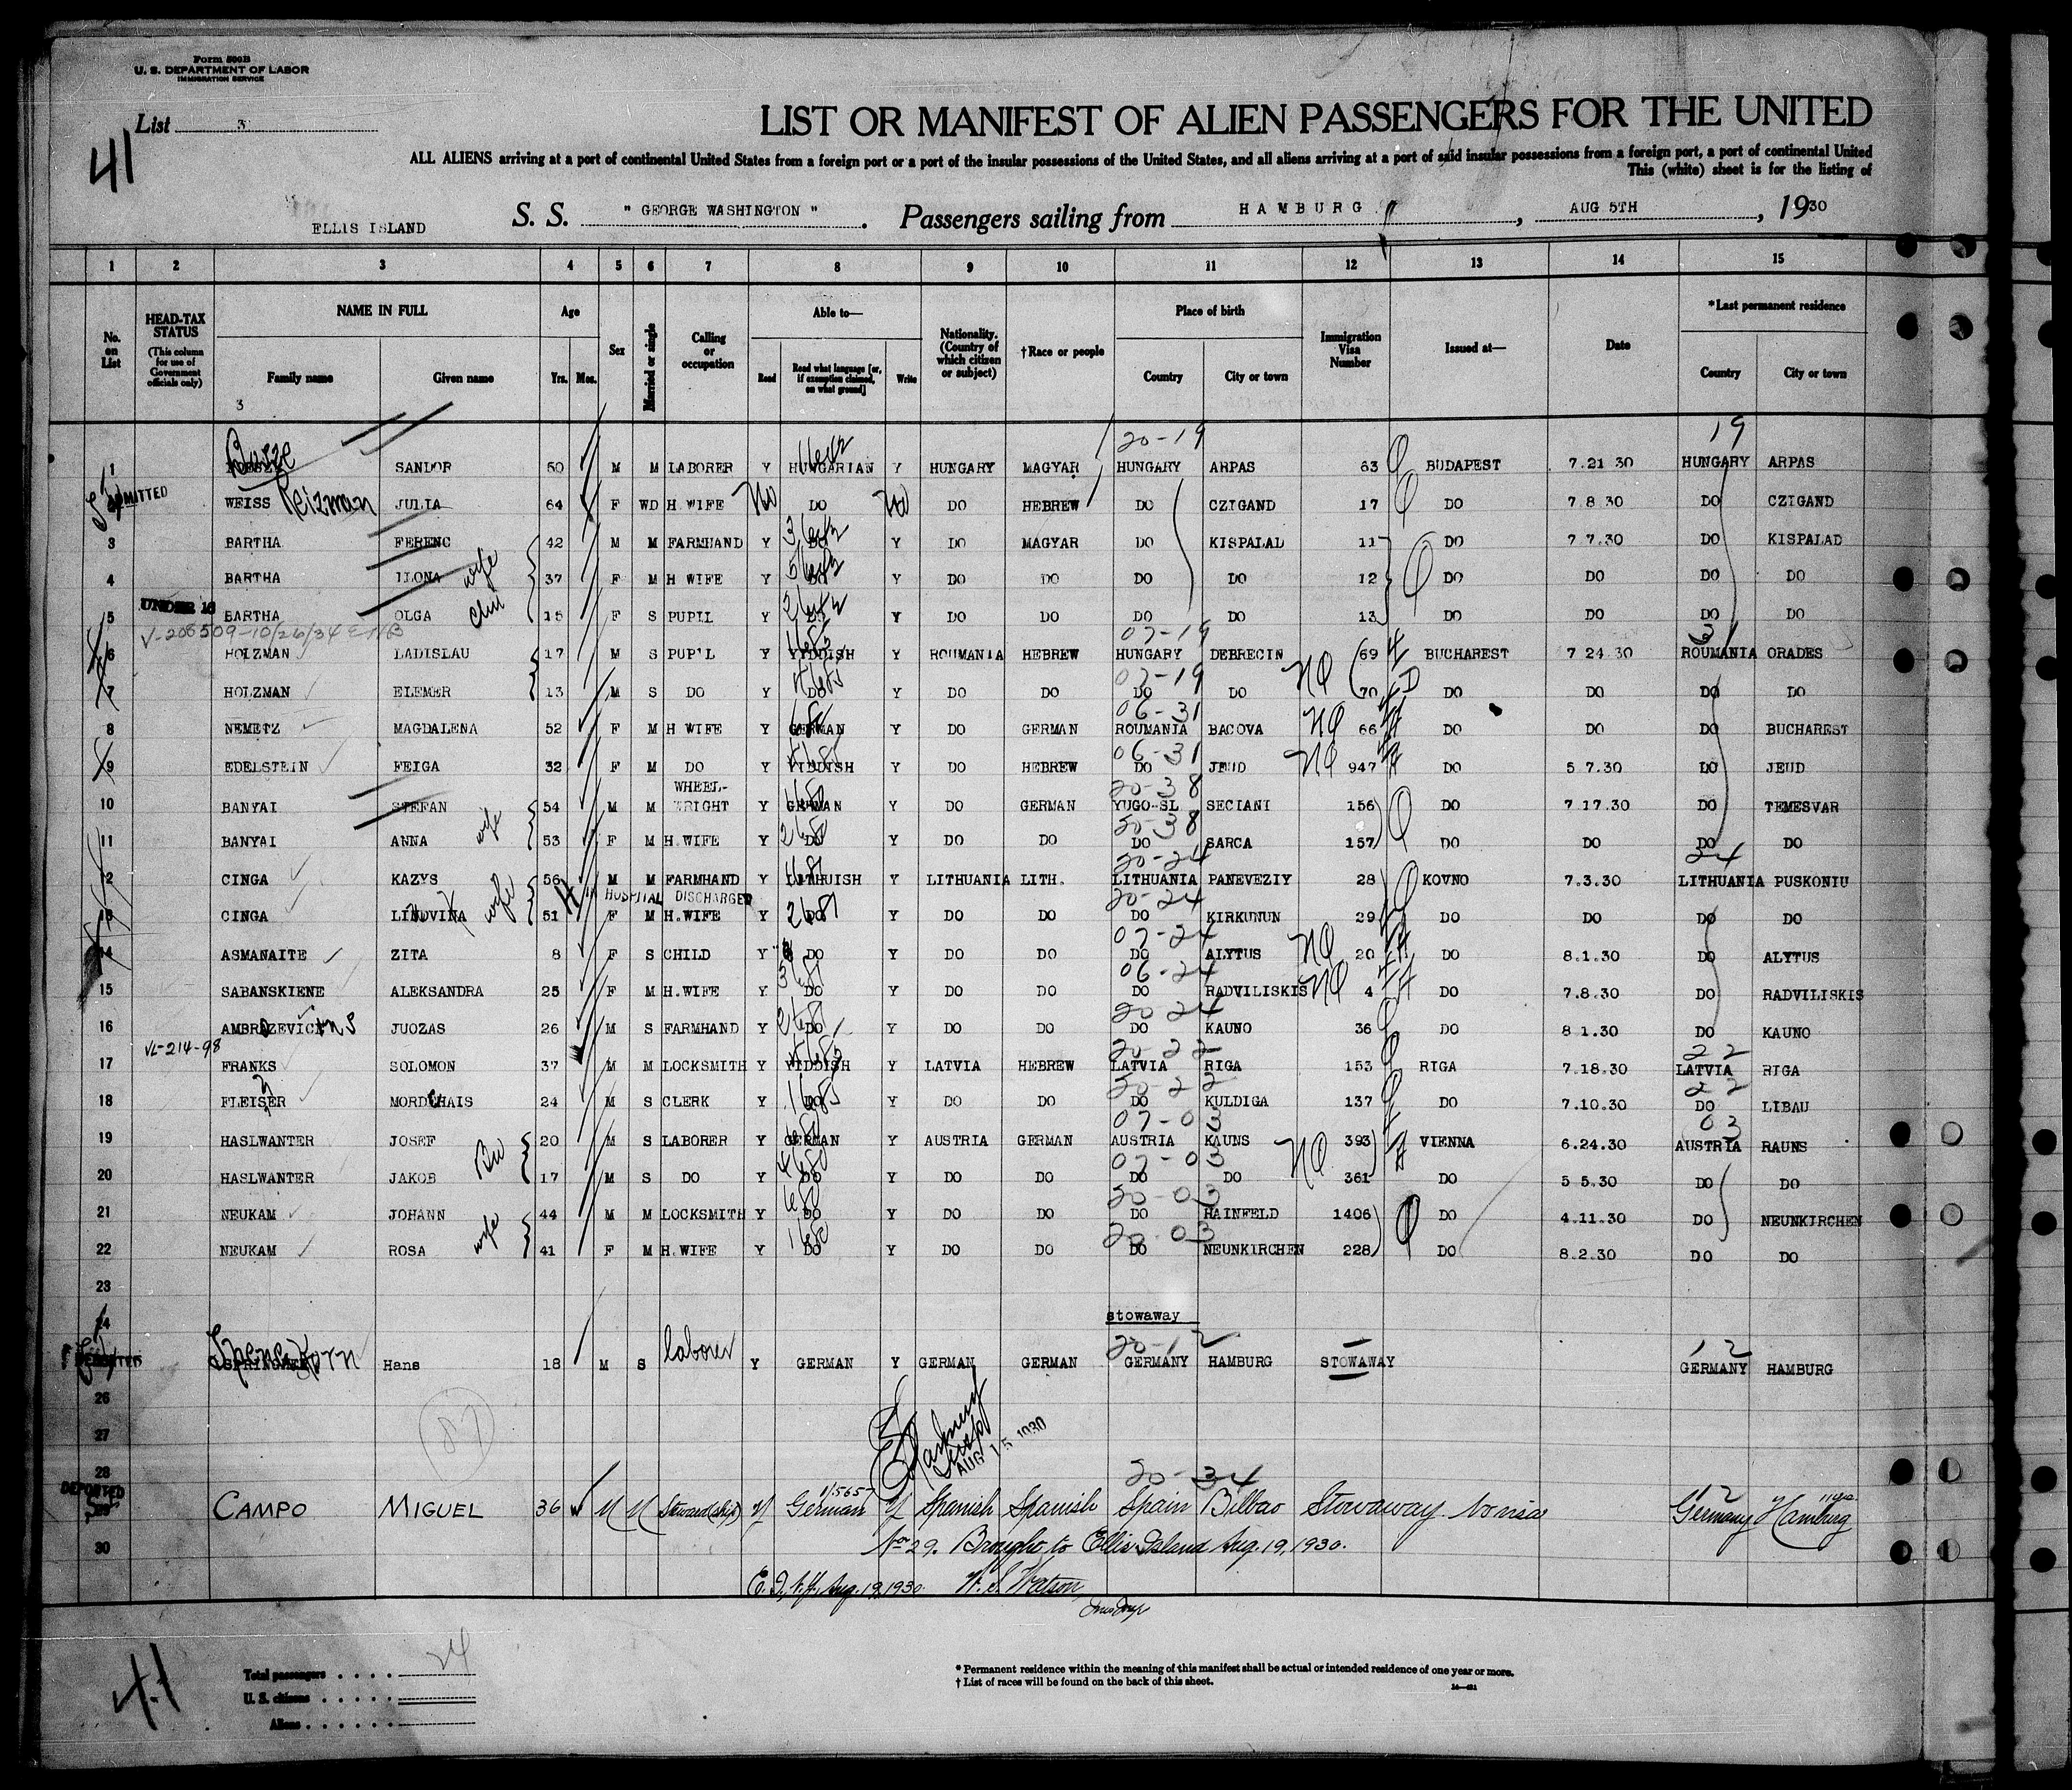 Form 500B
U. S. DEPARTMENT OF LABOR
IMMIGRATION SERVICE
List 3
41
LIST OR MANIFEST OF ALIEN PASSENGERS FOR THE UNITED
ALL ALIENS arriving at a port of continental United States from a foreign port or a port of the insular possessions of the United States, and all aliens arriving at a port of said insular possessions from a foreign port, a port of continental United
This (white) sheet is for the listing of
ELLIS ISLAND S. S. " GEORGE WASHINGTON ". Passengers sailing from HAMBURG, AUG 5TH, 1930
1 2 3 4 5 6 7 8 9 10 11 12 13 14 15
No. on List
HEAD-TAX STATUS (This column for use of Government officials only)
NAME IN FULL Family name Given name
Age Yrs. Mos.
Sex
Married or single
Calling or occupation
Able to— Read Read what language [or, if exemption claimed, on what ground] Write
Nationality. (Country of which citizen or subject)
†Race or people
Place of birth Country City or town
Immigration Visa Number
Issued at—
Date
*Last permanent residence Country City or town
3
20-19 19
1 SANDOR 50 M M LABORER Y HUNGARIAN Y HUNGARY MAGYAR HUNGARY ARPAS 63 BUDAPEST 7.21 30 HUNGARY ARPAS
ADMITTED WEISS Reizman JULIA 64 F WD H WIFE No DO No DO HEBREW DO CZIGAND 17 DO 7 8 30 DO CZIGAND
3 BARTHA FERENC 42 M M FARMHAND Y DO Y DO MAGYAR DO KISPALAD 11 DO 7 7.30 DO KISPALAD
4 BARTHA ILONA wife 37 F M H WIFE Y DO Y DO DO DO DO 12 DO DO DO DO
UNDER 16
5 BARTHA OLGA 15 F S PUPIL Y DO Y DO DO DO DO 13 DO DO DO DO
V-208509-10/26/34 07-19 31
6 HOLZMAN LADISLAU 17 M S PUPIL Y YIDDISH Y ROUMANIA HEBREW HUNGARY DEBRECIN 69 BUCHAREST 7 24 30 ROUMANIA ORADES
07-19
7 HOLZMAN ELEMER 13 M S DO Y DO Y DO DO DO DO NQ 70 DO DO DO DO
06-31
8 NEMETZ MAGDALENA 52 F M H WIFE Y GERMAN Y DO GERMAN ROUMANIA BACOVA NQ 66 DO DO DO BUCHAREST
06-31
9 EDELSTEIN FEIGA 32 F M DO Y YIDDISH Y DO HEBREW DO JEUD NQ 947 DO 5 7.30 DO JEUD
20-38
10 BANYAI STEFAN 54 M M WHEEL-WRIGHT Y GERMAN Y DO GERMAN YUGO-SL SECIANI 156 DO 7.17.30 DO TEMESVAR
20-38
11 BANYAI ANNA wife 53 F M H.WIFE Y DO Y DO DO DO SARCA 157 DO DO DO DO
20-24 24
12 CINGA KAZYS 56 M M FARMHAND Y LITHUISH Y LITHUANIA LITH. LITHUANIA PANEVEZIY 28 KOVNO 7.3.30 LITHUANIA PUSKONIU
IN HOSPITAL DISCHARGED 20-24
13 CINGA wife 51 F M H.WIFE Y DO Y DO DO DO KIRKUNUN 29 DO DO DO DO
07-24
14 ASMANAITE ZITA 8 F S CHILD Y DO Y DO DO DO ALYTUS NQ 20 DO 8.1.30 DO ALYTUS
06-24
15 SABANSKIENE ALEKSANDRA 25 F M H.WIFE Y DO Y DO DO DO RADVILISKIS NQ 4 DO 7.8.30 DO RADVILISKIS
20 24
16 JUOZAS 26 M S FARMHAND Y DO Y DO DO DO KAUNO 36 DO 8 1.30 DO KAUNO
VL-214-98 20-22 22
17 FRANKS SOLOMON 37 M M LOCKSMITH Y YIDDISH Y LATVIA HEBREW LATVIA RIGA 153 RIGA 7.18.30 LATVIA RIGA
20-22 22
18 FLEISER MORDCHAIS 24 M S CLERK Y DO Y DO DO DO KULDIGA 137 DO 7.10.30 DO LIBAU
07-03 03
19 HASLWANTER JOSEF 20 M S LABORER Y GERMAN Y AUSTRIA GERMAN AUSTRIA KAUNS 393 VIENNA 6.24.30 AUSTRIA RAUNS
07-03
20 HASLWANTER JAKOB 17 M S DO Y DO Y DO DO DO DO NQ 361 DO 5 5.30 DO DO
20-03
21 NEUKAM JOHANN 44 M M LOCKSMITH Y DO Y DO DO DO HAINFELD 1406 DO 4.11.30 DO NEUNKIRCHEN
20-03
22 NEUKAM ROSA wife 41 F M H.WIFE Y DO Y DO DO DO NEUNKIRCHEN 228 DO 8.2.30 DO DO
23
24 stowaway
20-12 12
Hans 18 M S laborer Y GERMAN Y GERMAN GERMAN GERMANY HAMBURG STOWAWAY GERMANY HAMBURG
26
87
27
AUG 15 1930
28 20-34
DEPORTED 12
CAMPO MIGUEL 36 M M Steward (ship) Y German Y Spanish Spanish Spain Bilbao Stowaway. No visa Germany Hamburg
30 No 29. Brought to Ellis Island Aug. 19, 1930.
E.I., N.Y., Aug. 19, 1930. W. S. Watson,
Insp.
41
Total passengers 24
U. S. citizens
Aliens
* Permanent residence within the meaning of this manifest shall be actual or intended residence of one year or more.
† List of races will be found on the back of this sheet.